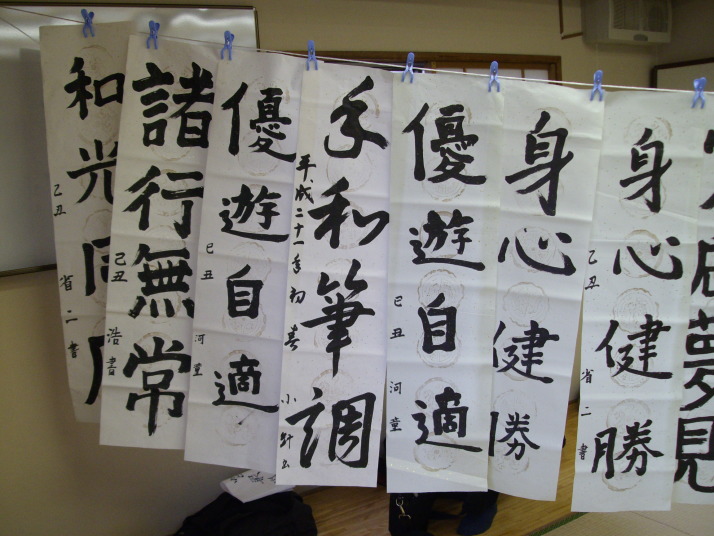 和光同
己丑 省二書
諸行無常
己丑 浩書
優遊自適
己丑 河童
手和筆調
平成二十一年初春
優遊自適
己丑 河童
身心健勝
身心健勝
己丑 省二書
夢見